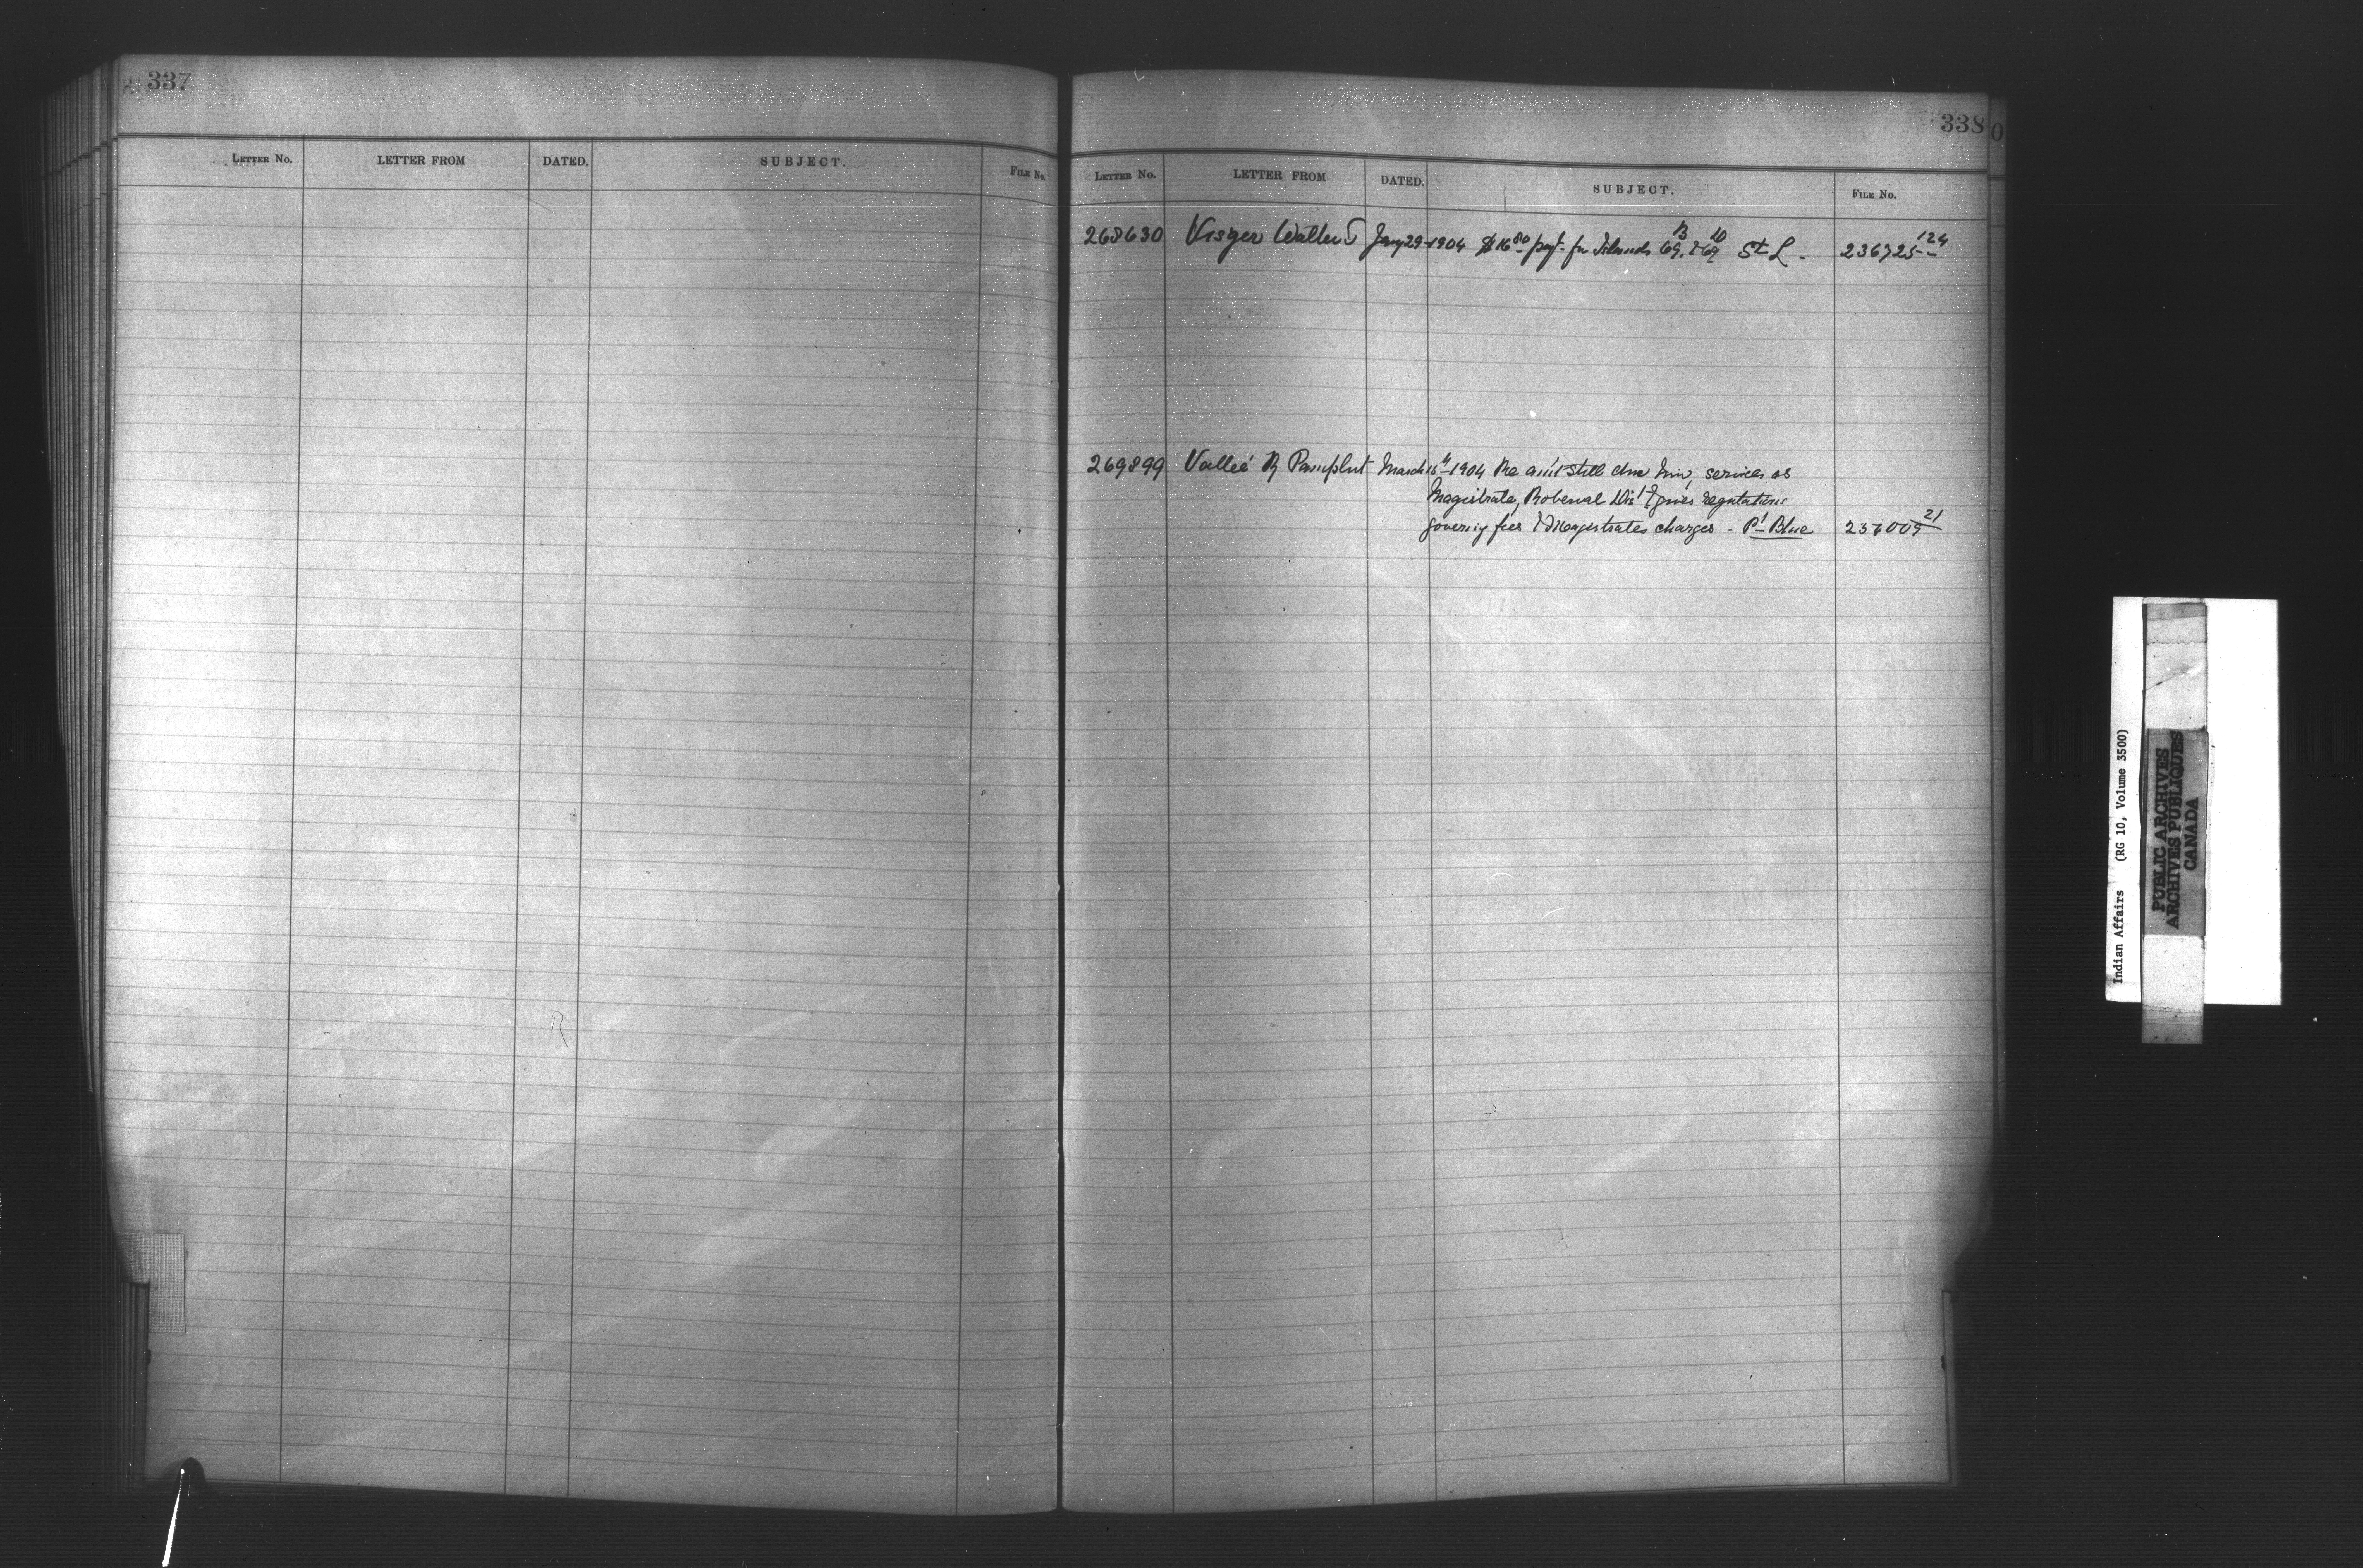 337
LETTER NO. LETTER FROM DATED. SUBJECT. FILE NO.
338
LETTER NO. LETTER FROM DATED. SUBJECT. FILE NO.
268630 Visger Walter S Jany 29 1904 $16 80 payt. for Islands 69 B & 69 D St L. 236725 124
269899 Vallee R Pamphut March 15th 1904 Re am't still due him, services as
Magistrate, Roberval Dis't & gives regulations
governig fees & Magistrates charges - Pt Blue 236009 21
Indian Affairs (RG 10, Volume 3500)
PUBLIC ARCHIVES
ARCHIVES PUBLIQUES
CANADA